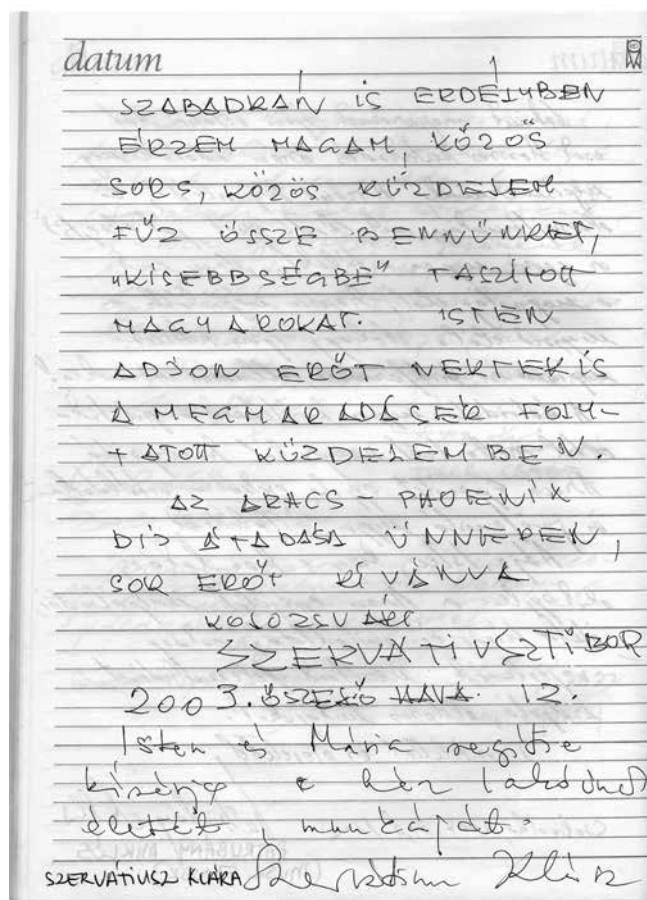 datum
SZABADKÁN IS ERDÉLYBEN
ÉRZEM MAGAM, KÖZÖS
SORS, KÖZÖS KÜZDELEM
FŰZ ÖSSZE BENNÜNKET,
„KISEBBSÉGBE" TASZÍTOTT
MAGYAROKAT. ISTEN
ADJON ERŐT NEKTEK IS
A MEGMARADÁSÉR FOLY-
TATOTT KÜZDELEMBEN.
AZ ARACS - PHOENIX
DÍJ ÁTADÁSA ÜNNEPÉN,
SOK ERŐT KÍVÁNVA
KOLOZSVÁRI
SZERVÁTIUSZ TIBOR
2003. ŐSZELŐ HAVA. 12.
Isten és Mária segítse
kísérje e ház lakóinak
életét, munkáját.
SZERVÁTIUSZ KLÁRA Szervátiusz Klára